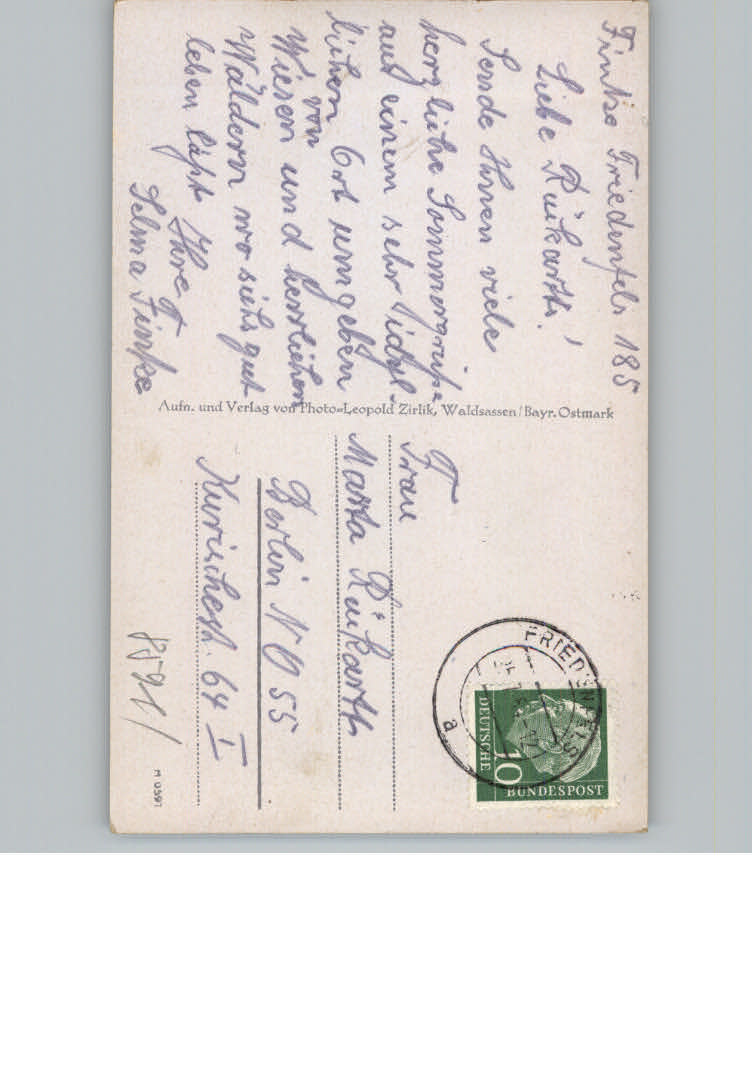 Finke Friedenfels 185
Liebe Rückarths!
Sende Ihnen viele
herzliche Sommergrüße
aus einem sehr idyl-
lichen Ort umgeben
von
Wiesen und herrlichen
Wäldern wo sichs gut
leben läßt Ihre
Selma Finke
Aufn. und Verlag von Photo=Leopold Zirlik, Waldsassen/Bayr. Ostmark
Frau
Marta
Berlin N O 55
64 I
FRIEDENFELS
a
10
DEUTSCHE
BUNDESPOST
8591/
M 0591